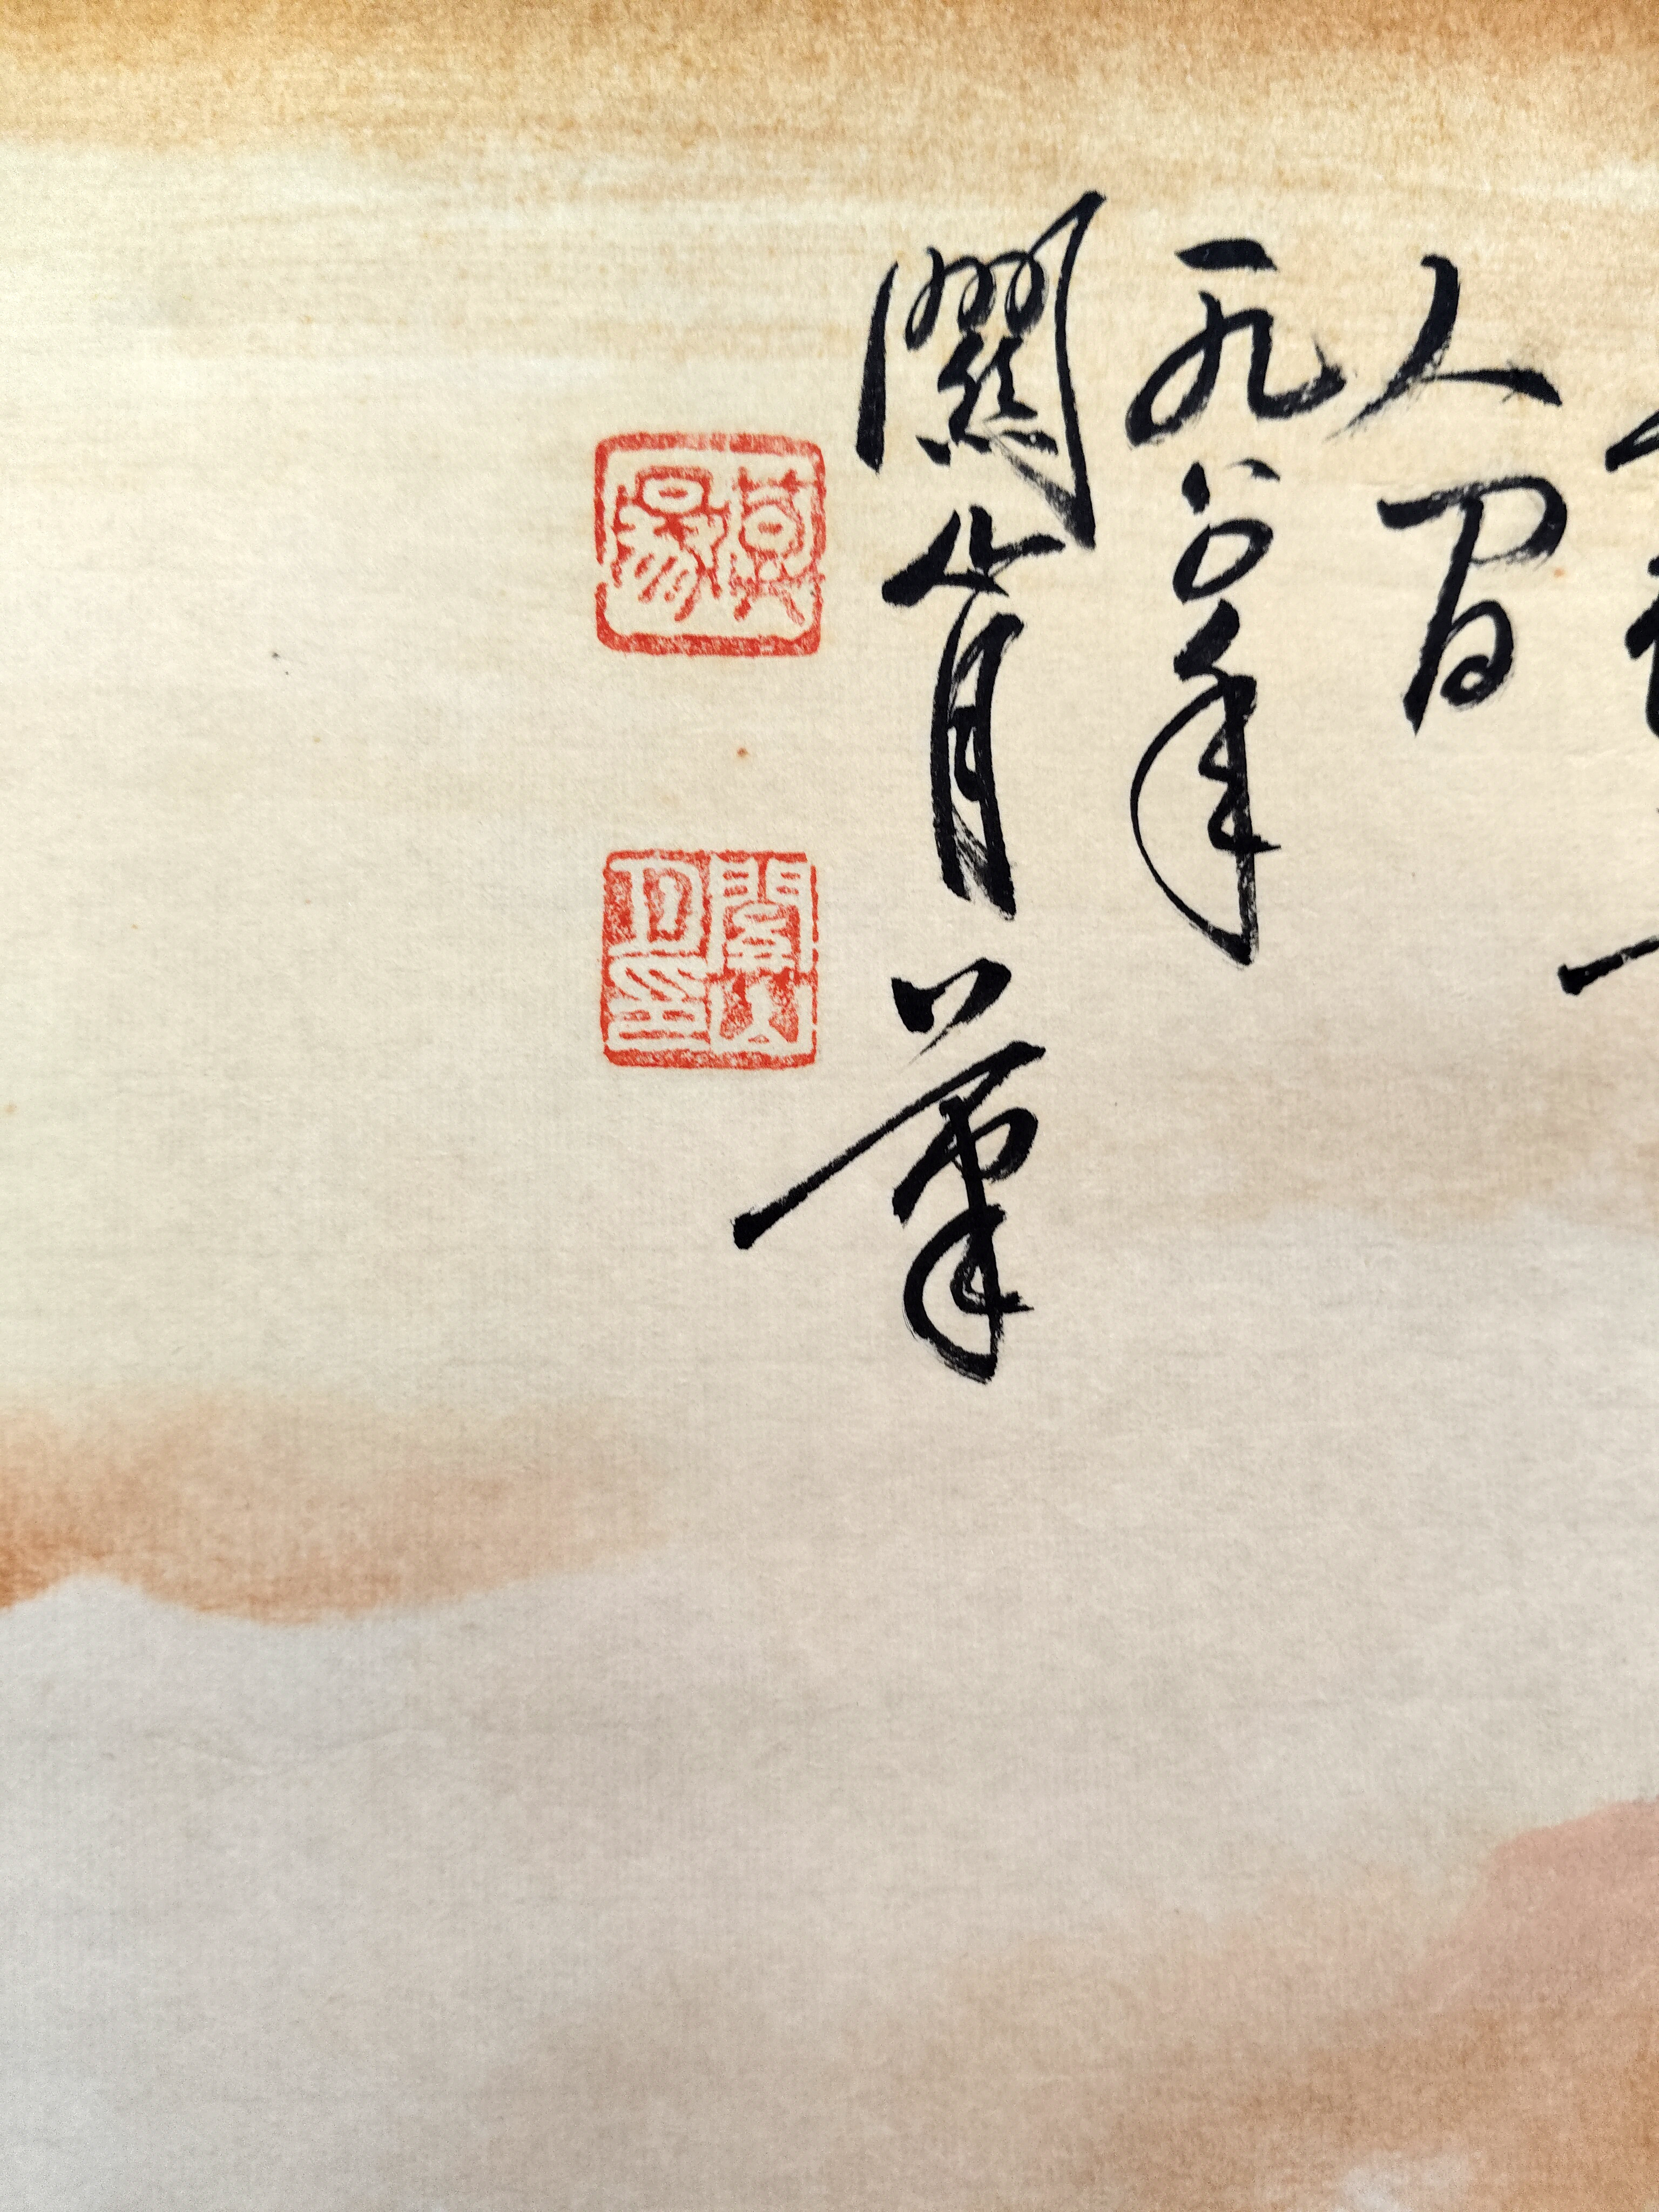 人間
一九八〇年
關山月筆
漠陽
關山月印